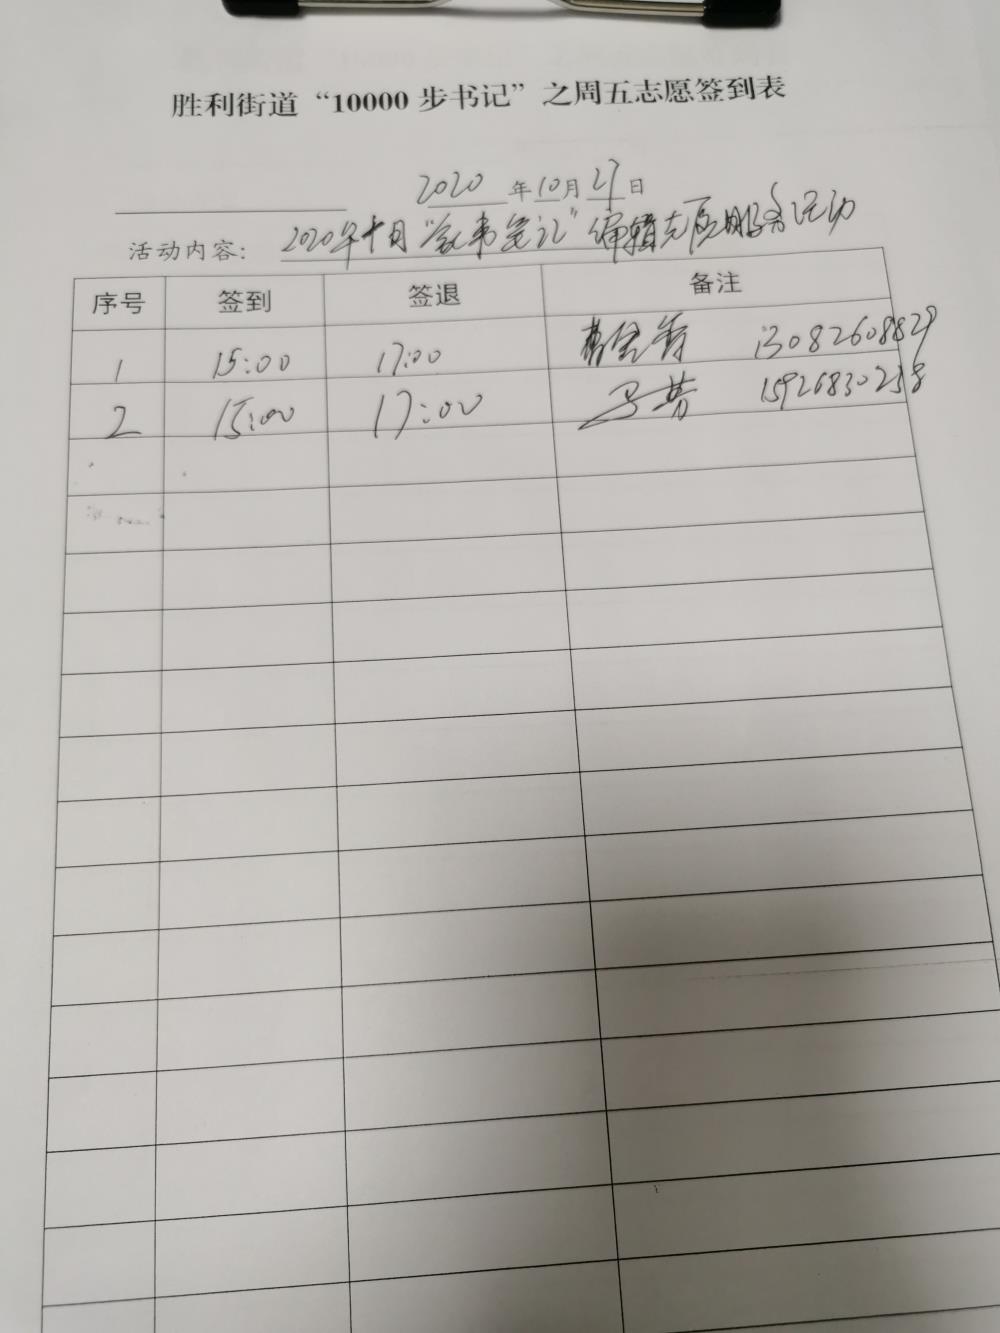 胜利街道“10000 步书记”之周五志愿签到表
2020 年 10 月 27 日
活动内容： 2020年十月“ 书笔记”编辑志愿服务活动
序号 签到 签退 备注
1 15:00 17:00 13082608829
2 15:00 17:00 马芳 15926830238